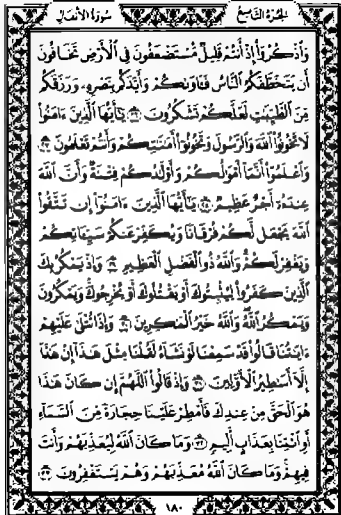 الجزء التاسع سورة الأنفال
وَاذْكُرُوا إِذْ أَنتُمْ قَلِيلٌ مُّسْتَضْعَفُونَ فِي الْأَرْضِ تَخَافُونَ
أَن يَتَخَطَّفَكُمُ النَّاسُ فَآوَاكُمْ وَأَيَّدَكُم بِنَصْرِهِ وَرَزَقَكُم
مِّنَ الطَّيِّبَاتِ لَعَلَّكُمْ تَشْكُرُونَ ٢٦ يَا أَيُّهَا الَّذِينَ آمَنُوا
لَا تَخُونُوا اللَّهَ وَالرَّسُولَ وَتَخُونُوا أَمَانَاتِكُمْ وَأَنتُمْ تَعْلَمُونَ ٢٧
وَاعْلَمُوا أَنَّمَا أَمْوَالُكُمْ وَأَوْلَادُكُمْ فِتْنَةٌ وَأَنَّ اللَّهَ
عِندَهُ أَجْرٌ عَظِيمٌ ٢٨ يَا أَيُّهَا الَّذِينَ آمَنُوا إِن تَتَّقُوا
اللَّهَ يَجْعَل لَّكُمْ فُرْقَانًا وَيُكَفِّرْ عَنكُمْ سَيِّئَاتِكُمْ
وَيَغْفِرْ لَكُمْ وَاللَّهُ ذُو الْفَضْلِ الْعَظِيمِ ٢٩ وَإِذْ يَمْكُرُ بِكَ
الَّذِينَ كَفَرُوا لِيُثْبِتُوكَ أَوْ يَقْتُلُوكَ أَوْ يُخْرِجُوكَ وَيَمْكُرُونَ
وَيَمْكُرُ اللَّهُ وَاللَّهُ خَيْرُ الْمَاكِرِينَ ٣٠ وَإِذَا تُتْلَى عَلَيْهِمْ
آيَاتُنَا قَالُوا قَدْ سَمِعْنَا لَوْ نَشَاءُ لَقُلْنَا مِثْلَ هَذَا إِنْ هَذَا
إِلَّا أَسَاطِيرُ الْأَوَّلِينَ ٣١ وَإِذْ قَالُوا اللَّهُمَّ إِن كَانَ هَذَا
هُوَ الْحَقَّ مِنْ عِندِكَ فَأَمْطِرْ عَلَيْنَا حِجَارَةً مِّنَ السَّمَاءِ
أَوِ ائْتِنَا بِعَذَابٍ أَلِيمٍ ٣٢ وَمَا كَانَ اللَّهُ لِيُعَذِّبَهُمْ وَأَنتَ
فِيهِمْ وَمَا كَانَ اللَّهُ مُعَذِّبَهُمْ وَهُمْ يَسْتَغْفِرُونَ ٣٣
١٨٠